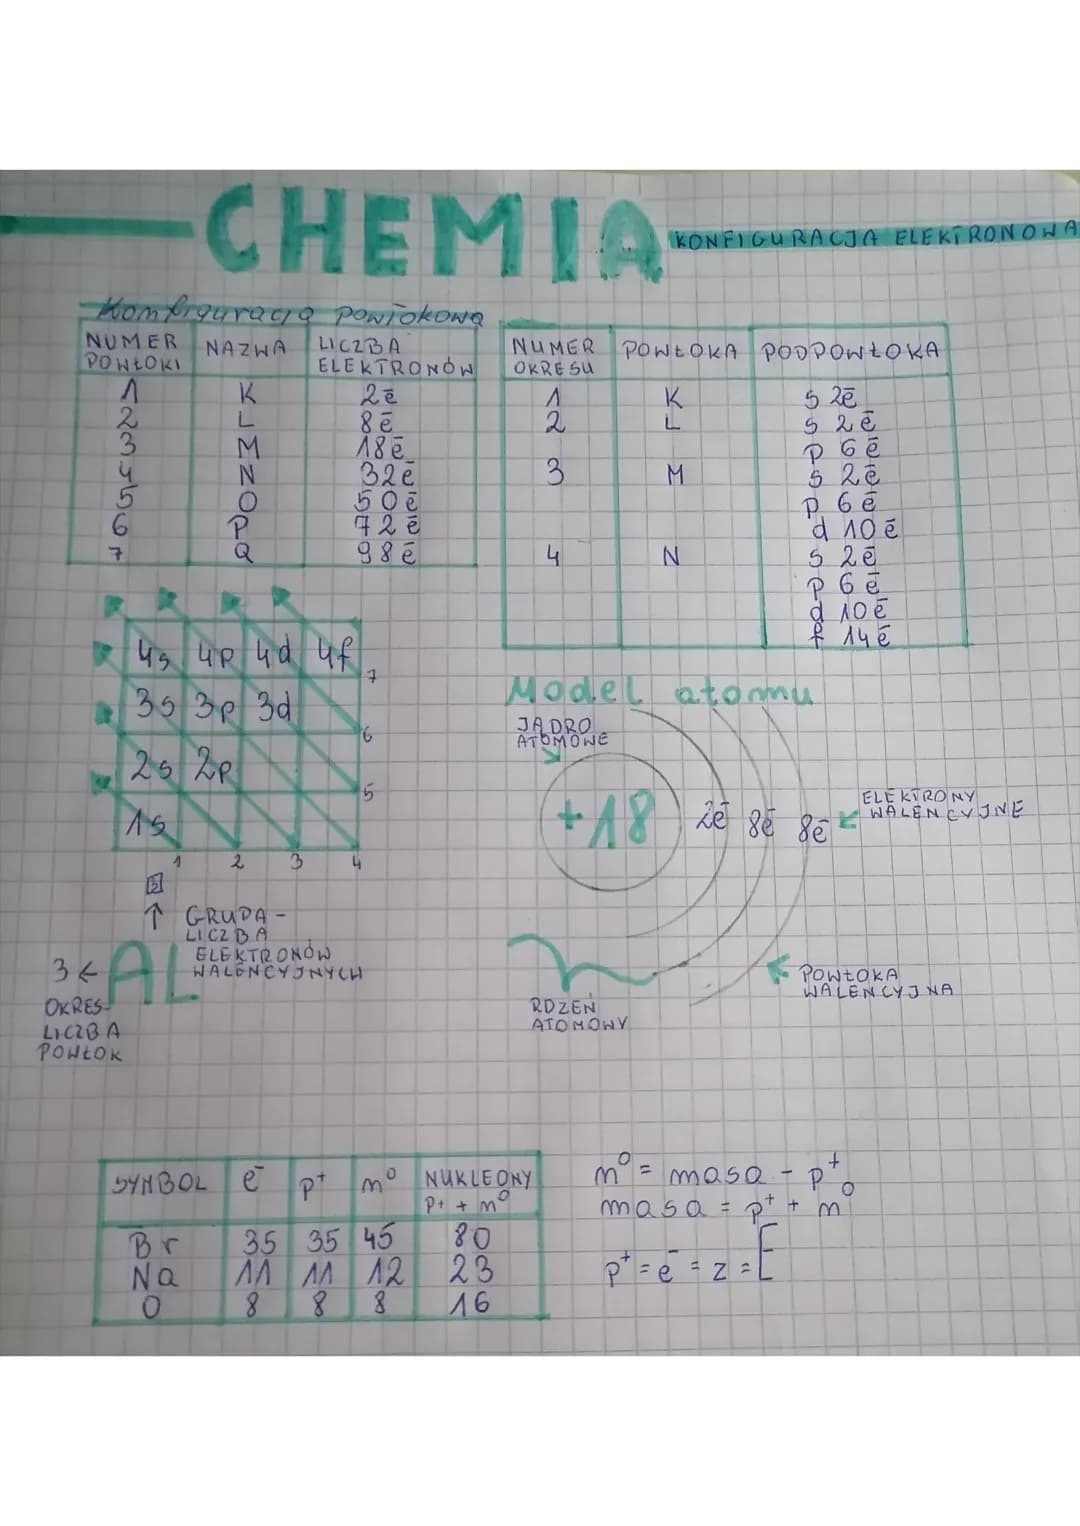 CHEMIA
KONFIGURACJA ELEKTRONOWA
Konfiguracja powłokowa
NUMER POWŁOKI NAZWA LICZBA ELEKTRONÓW
1 K 2ē
2 L 8ē
3 M 18ē
4 N 32ē
5 O 50ē
6 P 72ē
7 Q 98ē
NUMER OKRESU POWŁOKA PODPOWŁOKA
1 K s 2ē
2 L s 2ē
p 6ē
3 M s 2ē
p 6ē
d 10ē
4 N s 2ē
p 6ē
d 10ē
f 14ē
4s 4p 4d 4f
7
3s 3p 3d
6
2s 2p
5
1s
1 2 3 4
Model atomu
JĄDRO
ATOMOWE
+18 2ē 8ē 8ē
ELEKTRONY
WALENCYJNE
POWŁOKA
WALENCYJNA
RDZEŃ
ATOMOWY
↑ GRUPA -
LICZBA
ELEKTRONÓW
WALENCYJNYCH
3 ← AL
OKRES-
LICZBA
POWŁOK
SYMBOL e⁻ p⁺ n⁰ NUKLEONY p+ + n⁰
Br 35 35 45 80
Na 11 11 12 23
O 8 8 8 16
n⁰ = masa - p⁺
masa = p⁺ + n⁰
p⁺ = e⁻ = z = E